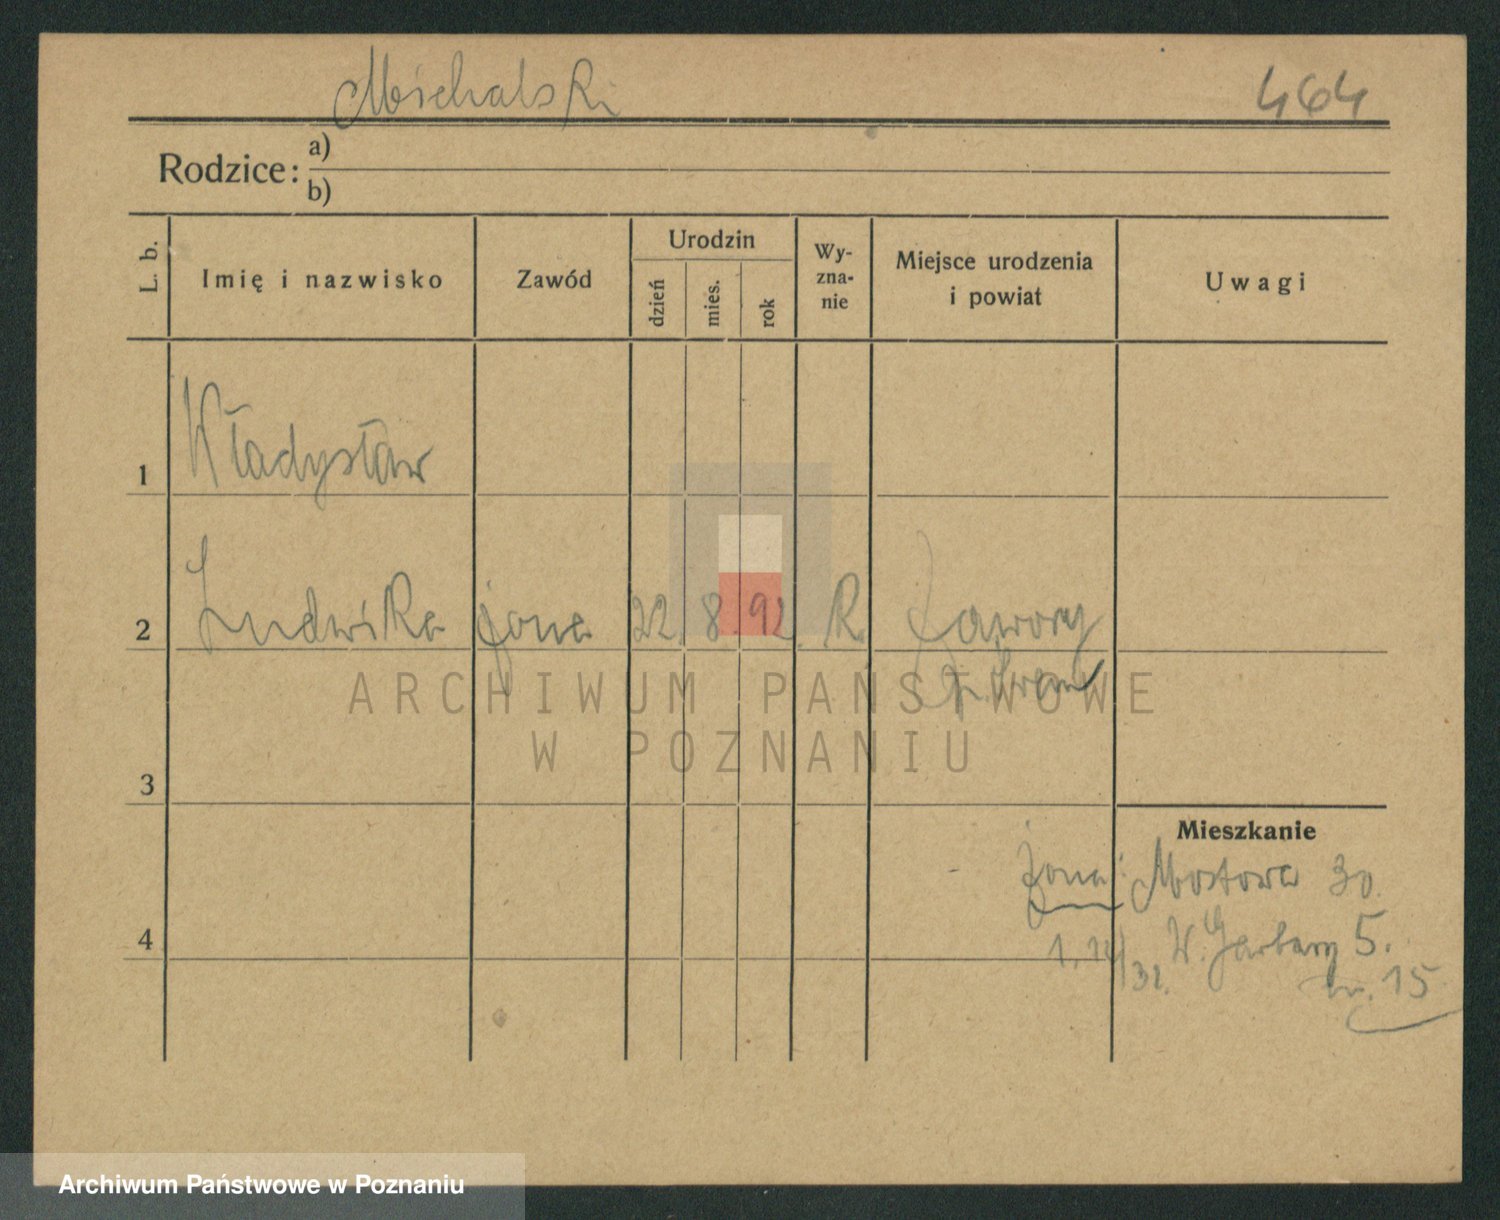 Michalski 464
Rodzice: a)
b)
L. b.
Imię i nazwisko
Zawód
Urodzin
dzień
mies.
rok
Wy-
zna-
nie
Miejsce urodzenia
i powiat
Uwagi
1 Władysław
2 Ludwika żona 22. 8. 92. R. Zawory
p. Śrem
ARCHIWUM PAŃSTWOWE
W POZNANIU
3
Mieszkanie
żona: Mostowa 30.
4
1.12/32. W. Garbary 5.
m. 15
Archiwum Państwowe w Poznaniu